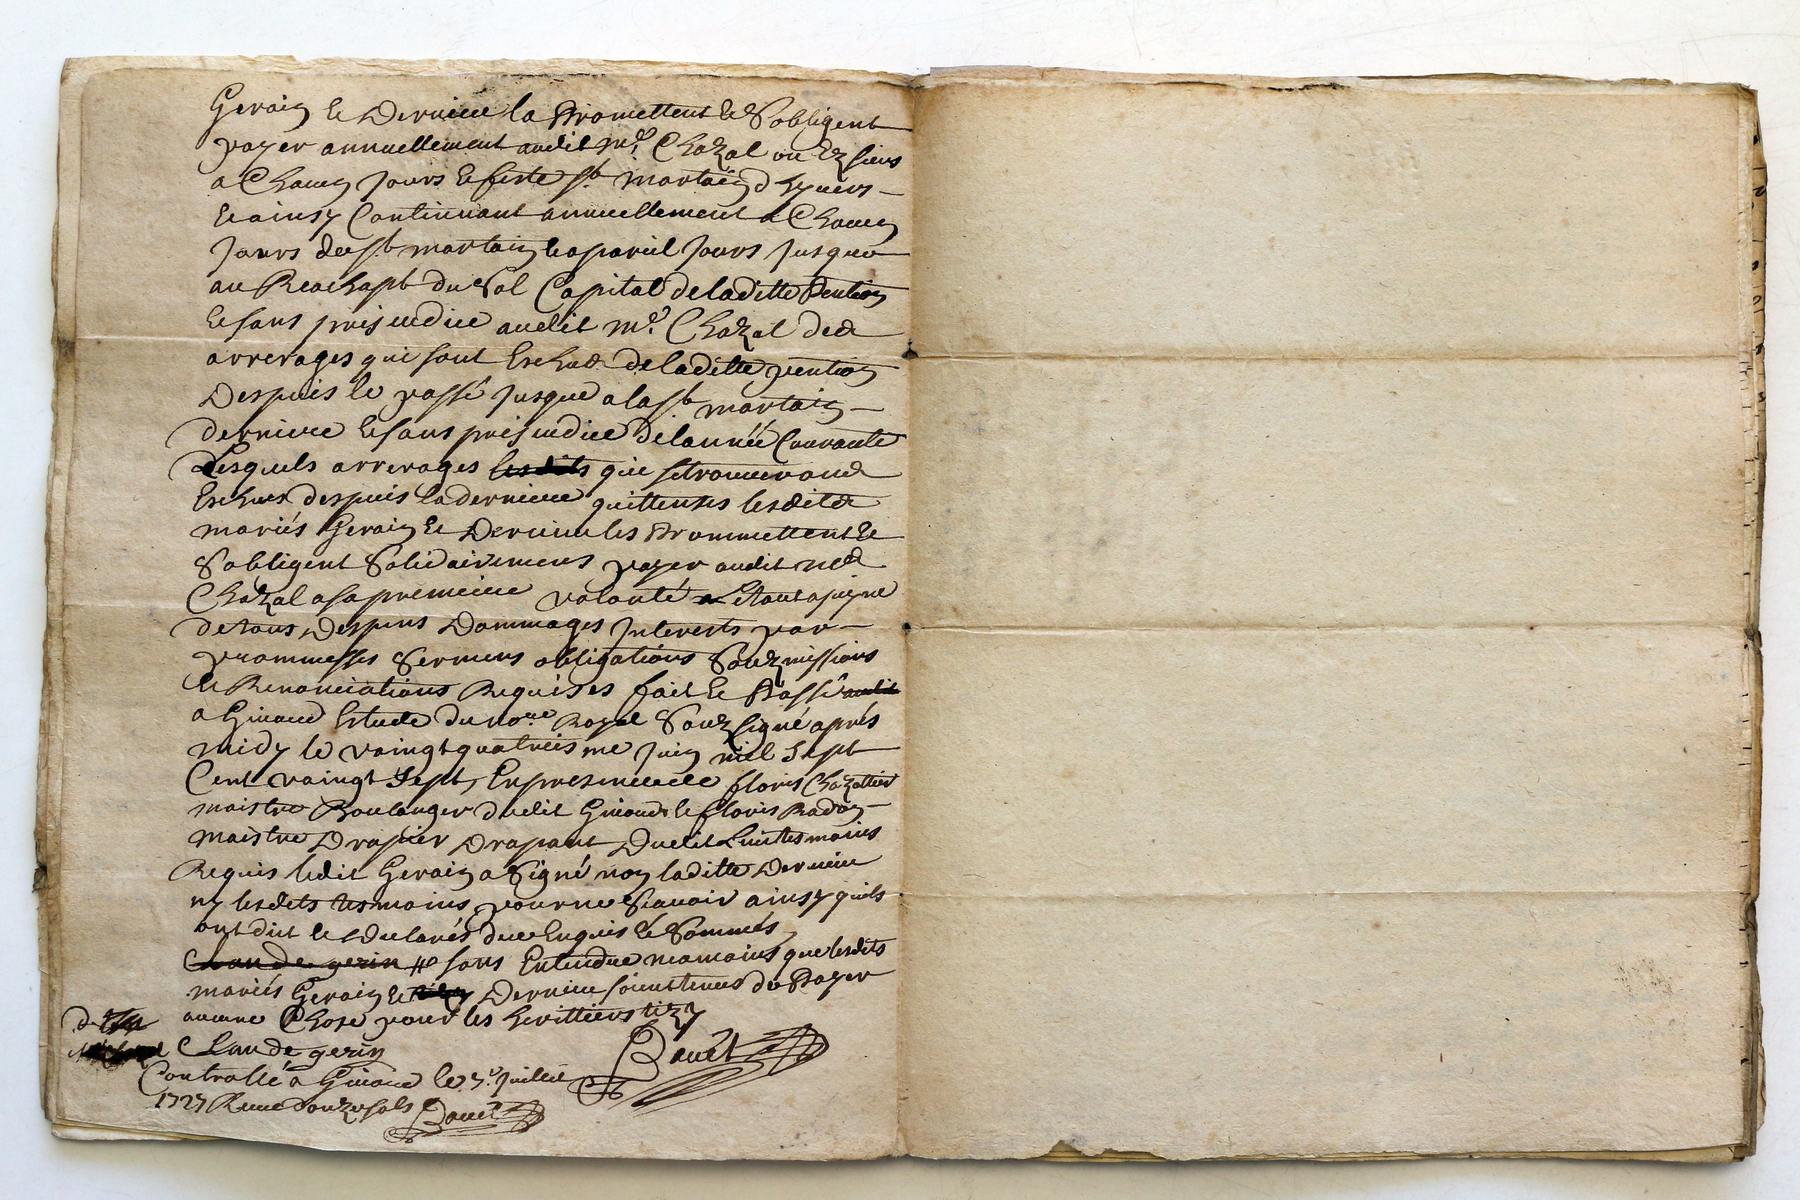 Gerain & Derniere la Promettent & Sobligent
payer annuellement audit mr. Chazal ou Ez siens
a Chacun Jours & feste st. martain d hyvers
& ainsy Continuant annuellement a Chacun
Jours de st martain & a pareil Jours Jusques
au Reachapt du Sol Capital de laditte Pention
& sans prejudice audit mr. Chazal des
arrerages qui sont Escheus de laditte pention
Despuis le passé Jusque a la st martain
derniere & sans prejudice de lannée Courante
Lesquels arrerages que se trouveront
Escheus despuis la derniere quittenses lesdits
mariés Gerain & Derniere les Prommettent &
Sobligent Solidairemens payer audit
Chazal a sa premiere volonté a
de tous Despens Dommages Interests par
prommesses Sermens obligations Soubzmissions
& Renonciations Requises fait & Passé audit
a Estude du nore Royal Soubzsigné aprés
midy le vaingt quatreisme Juin mil Sept
Cent vaingt Sept, En presence floris Chazallier
maistre Boulanger dudit & floris Radon
maistre Drapier Drapant Dudit Lieu tesmoins
Requis ledit Gerain a Signé non laditte Derniere
ny lesdits tesmoins pour ne Scavoir ainsy quils
ont dit & Declarés de ce Enquis & Sommés
Claude gerin sans Entendre neamoins que lesdits
mariés Gerain & Derniere soient tenus de Payer
aucune Chose pour les
Claude gerin
Controllé a le 3e Juillet
1727 Receu douze sols